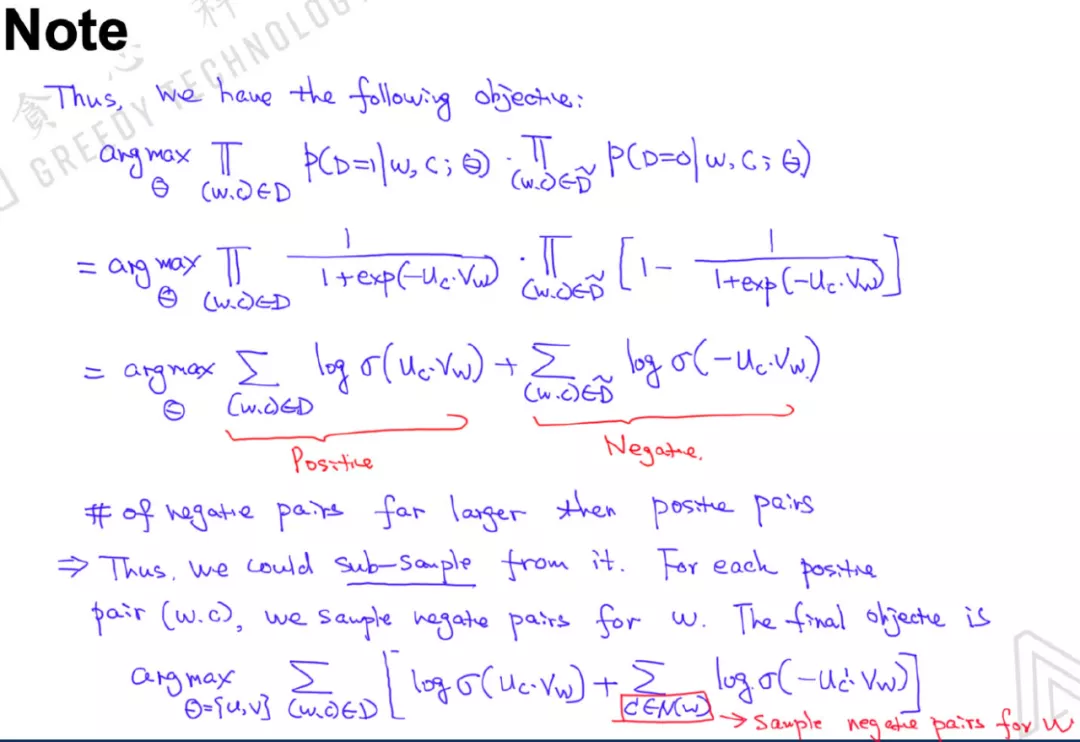 Note
贪 科
GREEDY TECHNOLOG
Thus, we have the following objective:
argmax_θ ∏_{(w,c)∈D} p(D=1|w,c;θ) · ∏_{(w,c)∈D̃} p(D=0|w,c;θ)
= argmax_θ ∏_{(w,c)∈D} 1/(1+exp(-u_c·v_w)) · ∏_{(w,c)∈D̃} [1 - 1/(1+exp(-u_c·v_w))]
= argmax_θ ∑_{(w,c)∈D} log σ(u_c·v_w) + ∑_{(w,c)∈D̃} log σ(-u_c·v_w)
Positive Negative.
# of negative pairs far larger then positive pairs
⇒ Thus, we could sub-sample from it. For each positive
pair (w.c), we sample negative pairs for w. The final objective is
argmax_{θ={u,v}} ∑_{(w,c)∈D} [log σ(u_c·v_w) + ∑_{c'∈N(w)} log σ(-u_c'·v_w)]
→ sample negative pairs for w